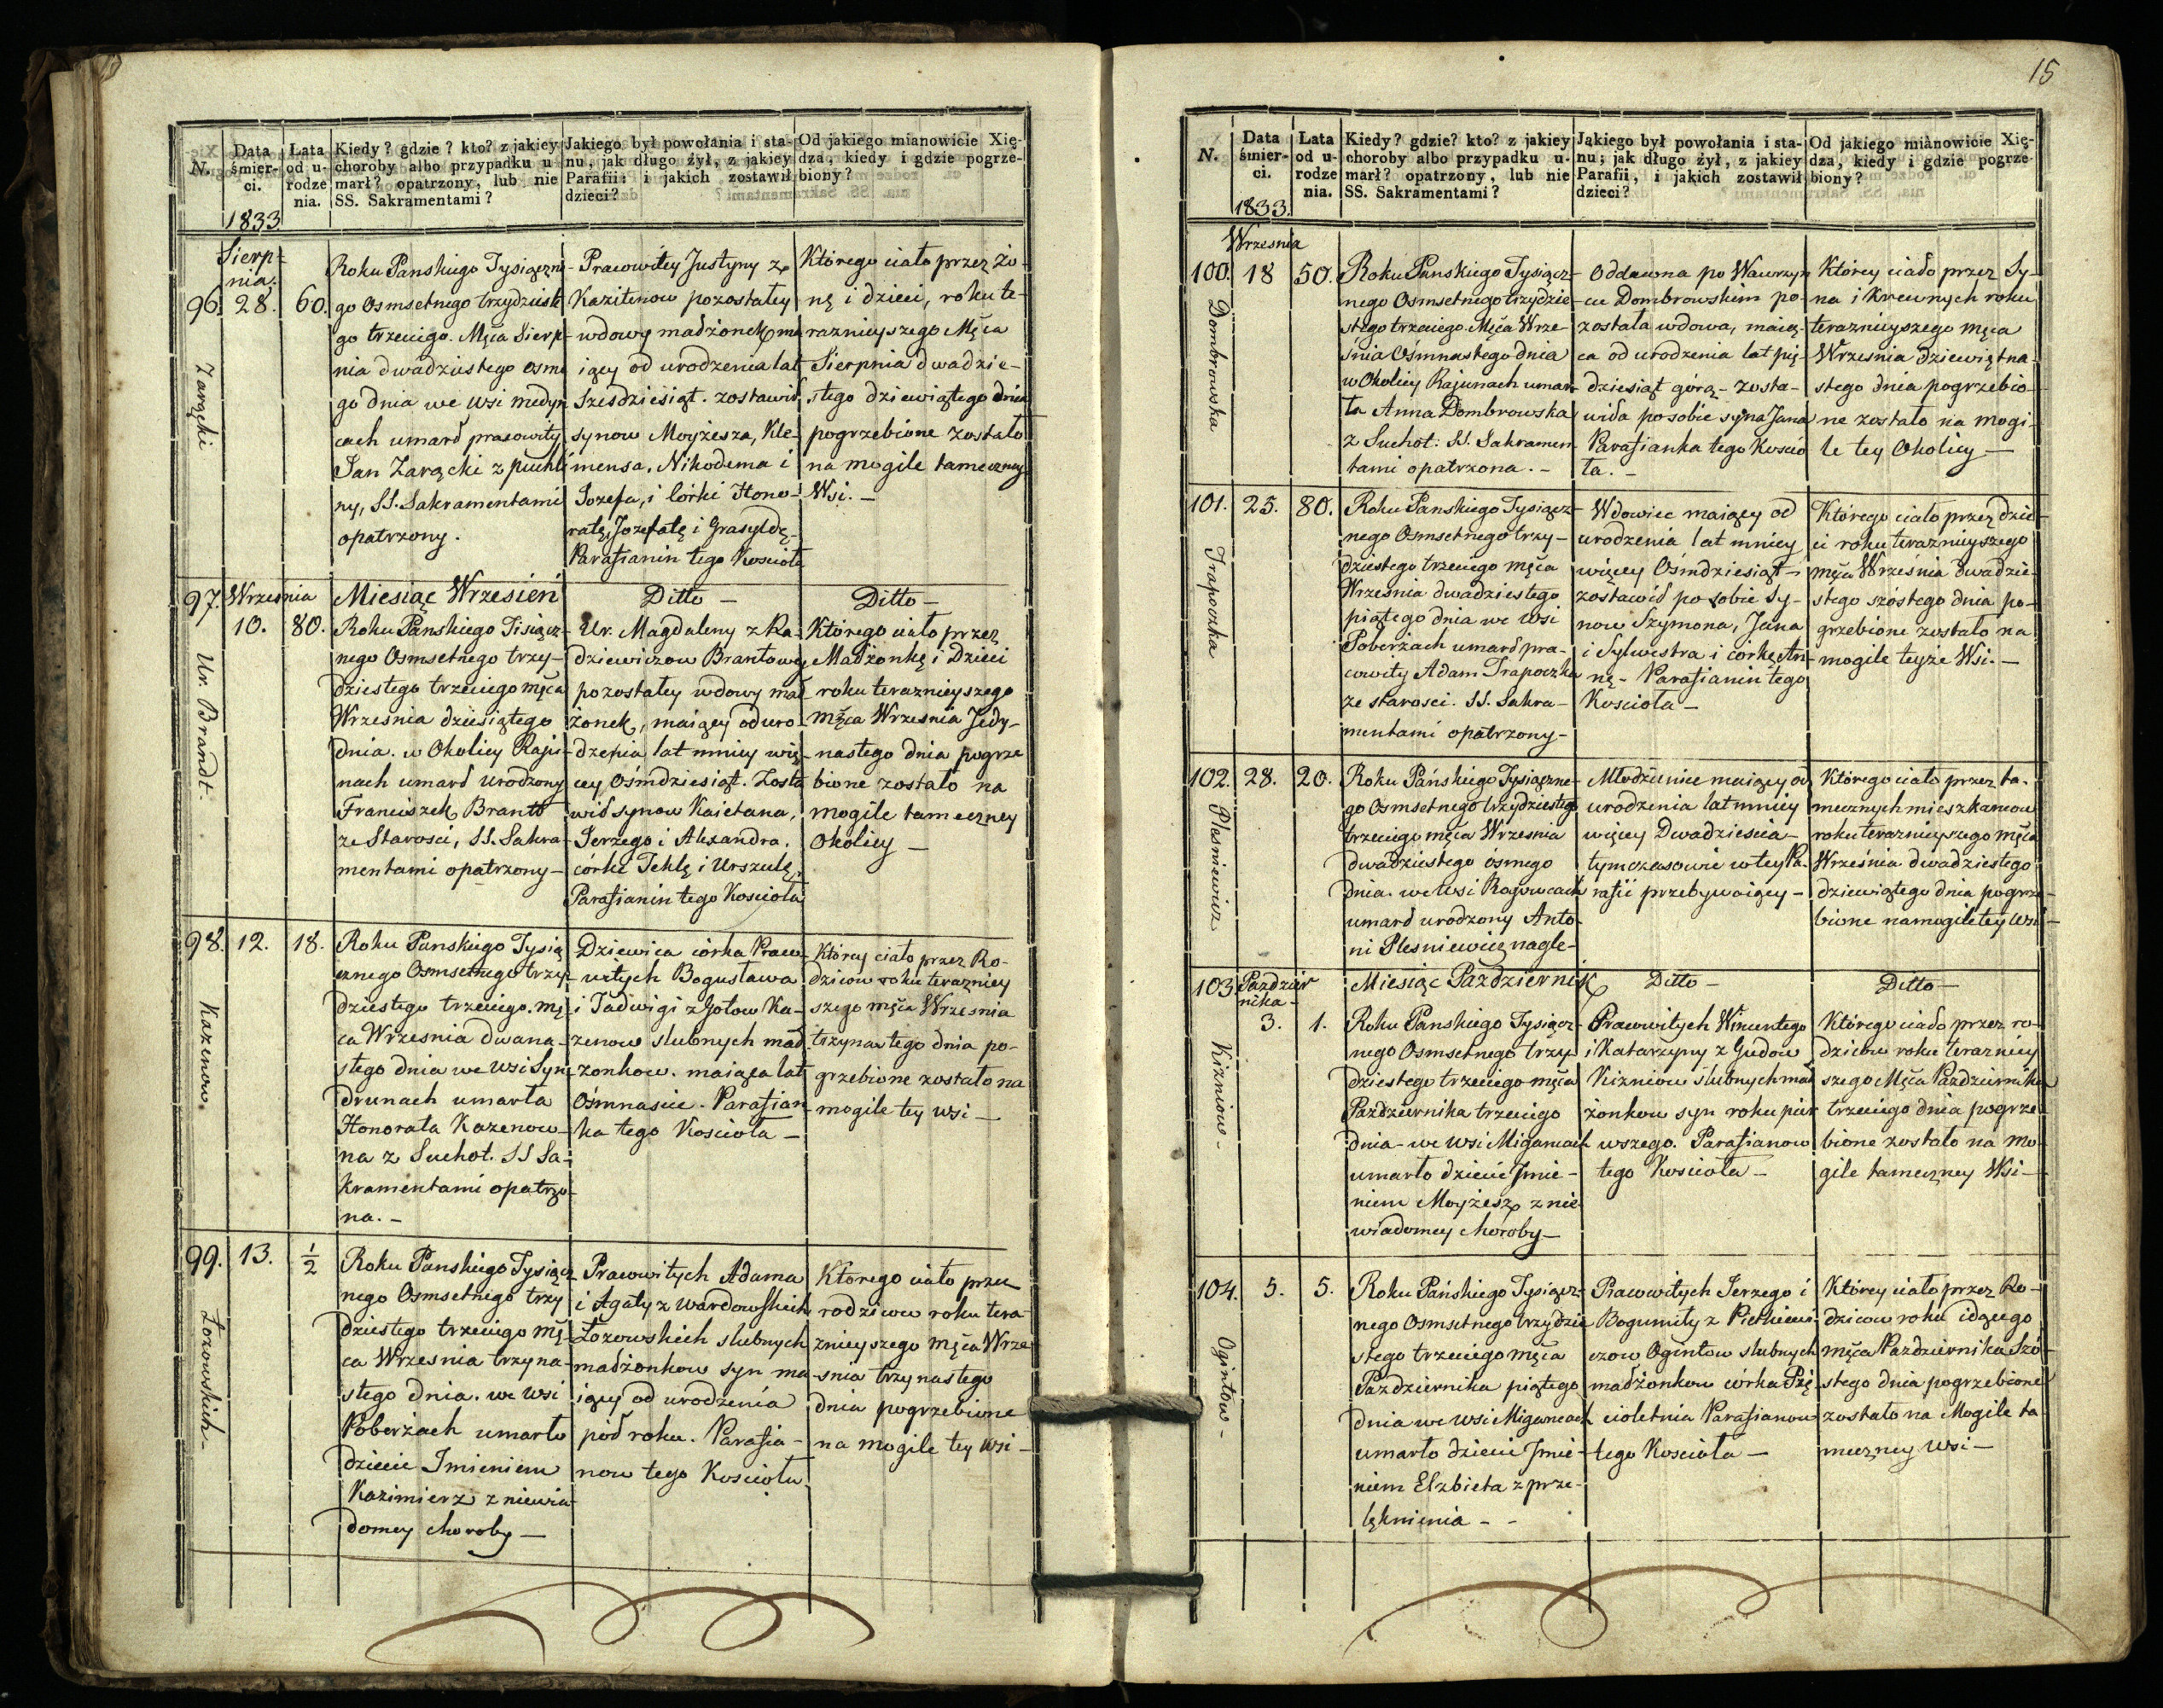 N.
Data
śmier-
ci.
1833
Lata
od u-
rodze
nia.
Kiedy? gdzie? kto? z jakiey
choroby albo przypadku u-
marł? opatrzony, lub nie
SS. Sakramentami?
Jakiego był powołania i sta-
nu, jak długo żył, z jakiey
Parafii: i jakich zostawił
dzieci?
Od jakiego mianowicie Xię-
dza, kiedy i gdzie pogrze-
biony?
Sierp-
nia.
96. 28. 60.
Zarącki
Roku Panskiego Tysiączne-
go Osmsetnego trzydziest
go trzeciego. Męca Sierp-
nia dwadziestego osme
go dnia we wsi medyn
cach umarł pracowity
Jan Zarącki z puchli
ny, SS. Sakramentami
opatrzony.
Pracowitey Justyny z
Kazitenow pozostałey
wdowy madżonek ma
iący od urodzenia lat
Szesdziesiąt. zostawił
synow Moyżesza, Kle-
mensa, Nikodema i
Jozefa, i córki Hono-
ratę, Jozefatę i Grasyldę.
Parafianin tego Koscioła
Którego ciało przez żo-
nę i dzieci, roku te-
raznieyszego Męca
Sierpnia dwadzie-
stego dziewiątego dnia
pogrzebione zostało
na mogile tameczney
Wsi. -
97. Wrzesnia
10. 80.
Ur. Brandt.
Miesiąc Wrzesień
Roku Panskiego Tisiącz-
nego Osmsetnego trzy-
dziestego trzeciego męca
Wrzesnia dziesiątego
dnia. w Okolicy Raju-
nach umarł urodzony
Franciszek Brantt
ze Starosci, SS. Sakra-
mentami opatrzony -
Ditto -
Ur. Magdaleny z Ra-
dziewiczow Brantowey
pozostałey wdowy mał
żonek, maiący od uro
dzenia lat mniey wię-
cey Ośmdziesiąt. Zosta
wił synow Kaietana,
Jerzego i Alexandra.
córki Teklę i Urszulę,
Parafianin tego Koscioła
Ditto -
Którego ciało przez
Madżonkę i Dzieci
roku teraznieyszego
męca Wrzesnia Jedy-
nastego dnia pogrze
bione zostało na
mogile tameczney
Okolicy -
98. 12. 18.
Kazenow
Roku Panskiego Tysią
cznego Osmsetnego trzy-
dziestego trzeciego. mę
ca Wrzesnia dwana-
stego dnia we wsi Syn-
drunach umarła
Honorata Kazenow-
na z Suchot. SS Sa-
kramentami opatrzo-
na. -
Dziewica córka Praco-
witych Bogusława
i Jadwigi z Gotow Ka-
zenow slubnych mad
zonkow. maiąca lat
Ośmnascie. Parafian-
ka tego Koscioła -
Którey ciało przez Ro-
dzicow roku terazniey
szego męca Wrzesnia
trzynastego dnia po-
grzebione zostało na
mogile tey wsi -
99. 13. 1/2
Łozowskich -
Roku Panskiego Tysiącz
nego Osmsetnego trzy
dziestego trzeciego mę-
ca Wrzesnia trzyna
stego dnia. we wsi
Poberżach umarło
dziecie Imieniem
Kazimierz z niewia
domey choroby -
Pracowitych Adama
i Agaty z Wardowskich
Łozowskich slubnych
madżonkow syn ma-
iący od urodzenia
pół roku. Parafia-
now tego Koscioła.
Ktorego ciało przez
rodzicow roku tera-
znieyszego męca Wrze
snia trzynastego
dnia pogrzebione
na mogile tey wsi -
15
N.
Data
śmier-
ci.
1833.
Lata
od u-
rodze
nia.
Kiedy? gdzie? kto? z jakiey
choroby albo przypadku u-
marł? opatrzony, lub nie
SS. Sakramentami?
Jakiego był powołania i sta-
nu; jak długo żył, z jakiey
Parafii, i jakich zostawił
dzieci?
Od jakiego mianowicie Xię-
dza, kiedy i gdzie pogrze-
biony?
Wrzesnia
100. 18 50.
Dombrowska
Roku Panskiego Tysiącz-
nego Osmsetnego trzydzie-
stego trzeciego. Męca Wrze-
śnia Ośmnastego dnia
w Okolicy Rajunach umar-
ła Anna Dombrowska
z Suchot. SS. Sakramen
tami opatrzona. -
Oddawna po Wawrzyn
cu Dombrowskim po-
została wdowa, maią-
ca od urodzenia lat pię-
dziesiąt górą - zosta-
wiła po sobie syna Jana
Parafianka tego Koscio
ła. -
Którey ciało przez Sy-
na i Krewnych roku
teraznieyszego męca
Wrzesnia dziewiętna-
stego dnia pogrzebio-
ne zostało na mogi-
le tey Okolicy -
101. 25. 80.
Trapoczka
Roku Panskiego Tysiącz
nego Osmsetnego trzy-
dziestego trzeciego męca
Wrzesnia dwadziestego
piątego dnia we wsi
Poberżach umarł pra-
cowity Adam Trapoczka
ze starosci. SS. Sakra-
mentami opatrzony -
Wdowiec maiący od
urodzenia lat mniey
więcey Ośmdziesiąt -
zostawił po sobie Sy-
now Szymona, Jana
i Sylwestra i córkę An-
nę - Parafianin tego
Koscioła -
Którego ciało przez dzie-
ci roku teraznieyszego
męca Wrzesnia dwadzie-
stego szóstego dnia po-
grzebione zostało na
mogile teyże Wsi. -
102. 28. 20.
Plesniewicz
Roku Pańskiego Tysiączne-
go Osmsetnego trzydziestego
trzeciego męca Wrzesnia
dwadziestego ósmego
dnia. we wsi Rogowcach
umarł urodzony Anto-
ni Plesniewicz nagle -
Młodzieniec maiący od
urodzenia lat mniey
więcey Dwadziescia -
tymczasowie w tey Pa-
rafii przebywaiący -
Którego ciało przez ta-
mecznych mieszkancow
roku teraznieyszego męca
Września dwadziestego
dziewiątego dnia pogrze-
bione na mogile tey wsi -
103. Pazdzier
nika -
3. 1.
Kizniow -
Miesiąc Październik
Roku Panskiego Tysiącz-
nego Osmsetnego trzy
dziestego trzeciego męca
Pazdziernika trzeciego
dnia - we wsi Migancach
umarło dziecie Jmie-
niem Moyżesz z nie
wiadomey choroby -
Ditto -
Pracowitych Wincentego
i Katarzyny z Gudow
Kizniow slubnych mał
żonkow syn roku pier
wszego. Parafianow
tego Koscioła -
Ditto -
Którego ciało przez ro-
dzicow roku teraźniey
szego Męca Pazdziernika
trzeciego dnia pogrze
bione zostało na mo-
gile tameczney Wsi -
104. 5. 5.
Ogintow -
Roku Pańskiego Tysiącz-
nego Osmsetnego trzydzie
stego trzeciego męca
Pazdziernika piątego
dnia we wsi Migancach
umarło dziecie Jmie-
niem Elzbieta z prze-
lęknienia - -
Pracowitych Jerzego i
Bogumiły z Pietkiewi-
czow Ogintow slubnych
madżonkow córka Pię
cioletnia Parafianow
tego Koscioła -
Którey ciało przez Ro-
dzicow roku idącego
męca Pazdziernika Szó-
stego dnia pogrzebione
zostało na Mogile ta-
meczney wsi -